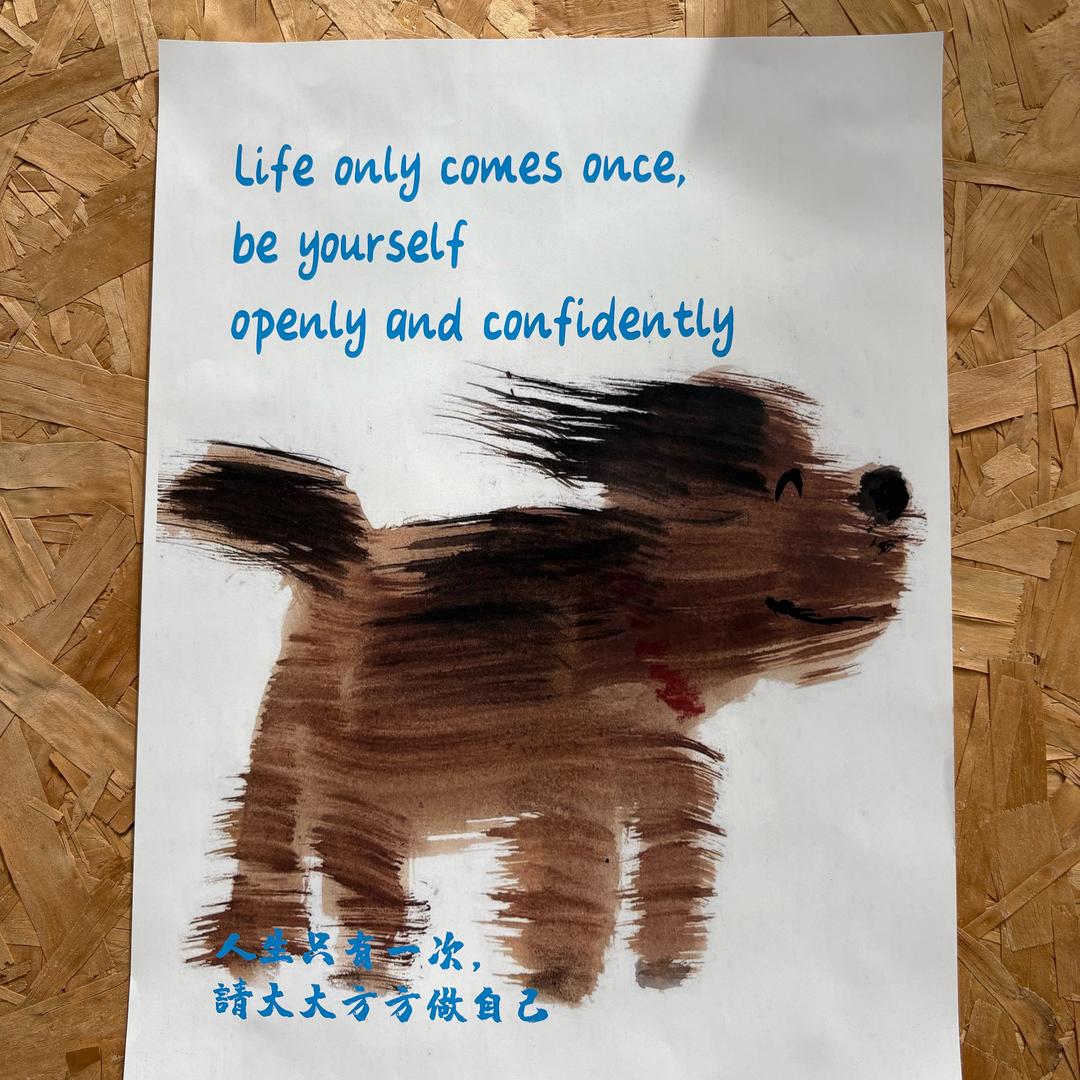 Life only comes once,
be yourself
openly and confidently
人生只有一次,
請大大方方做自己